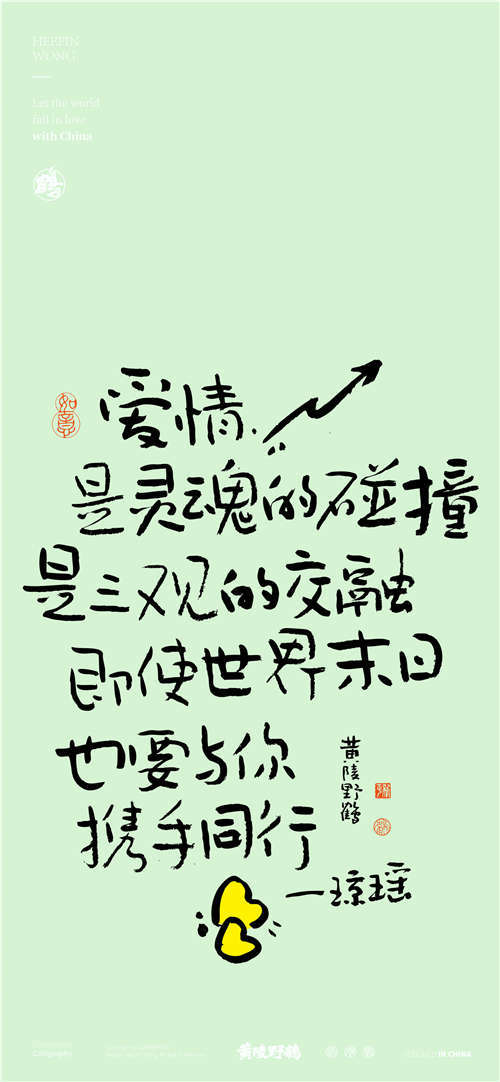 HEFEIN
WONG
Let the world
fall in love
with China
如意
爱情
是灵魂的碰撞
是三观的交融
即使世界末日
也要与你
携手同行
一琼瑶
黄陵野鹤
Calligraphy
黄陵野鹤
IN CHINA